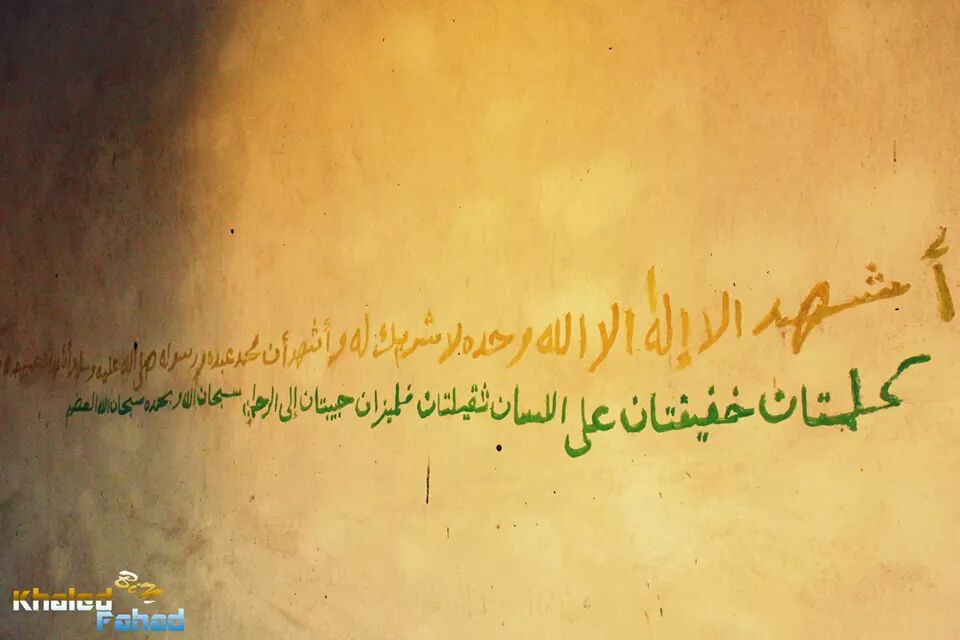 أشهد الا إله الا الله وحده لا شريك له وأشهد أن محمد عبده ورسوله صل الله عليه وسلم
كلمتان خفيفتان على اللسان ثقيلتان فلميزان حبيبتان إلى الرحمن سبحان الله وبحمده سبحان الله العظيم
Khaled
Fahad